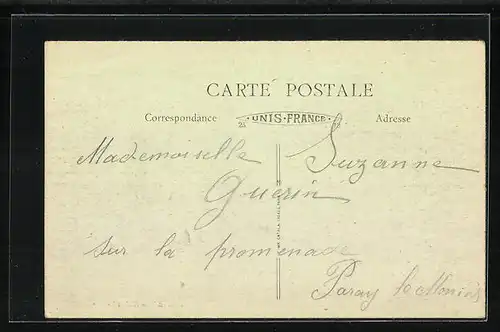 CARTE POSTALE
Correspondance UNIS-FRANCE Adresse
Mademoiselle Suzanne
Guérin
sur la promenade
Paray le Monial